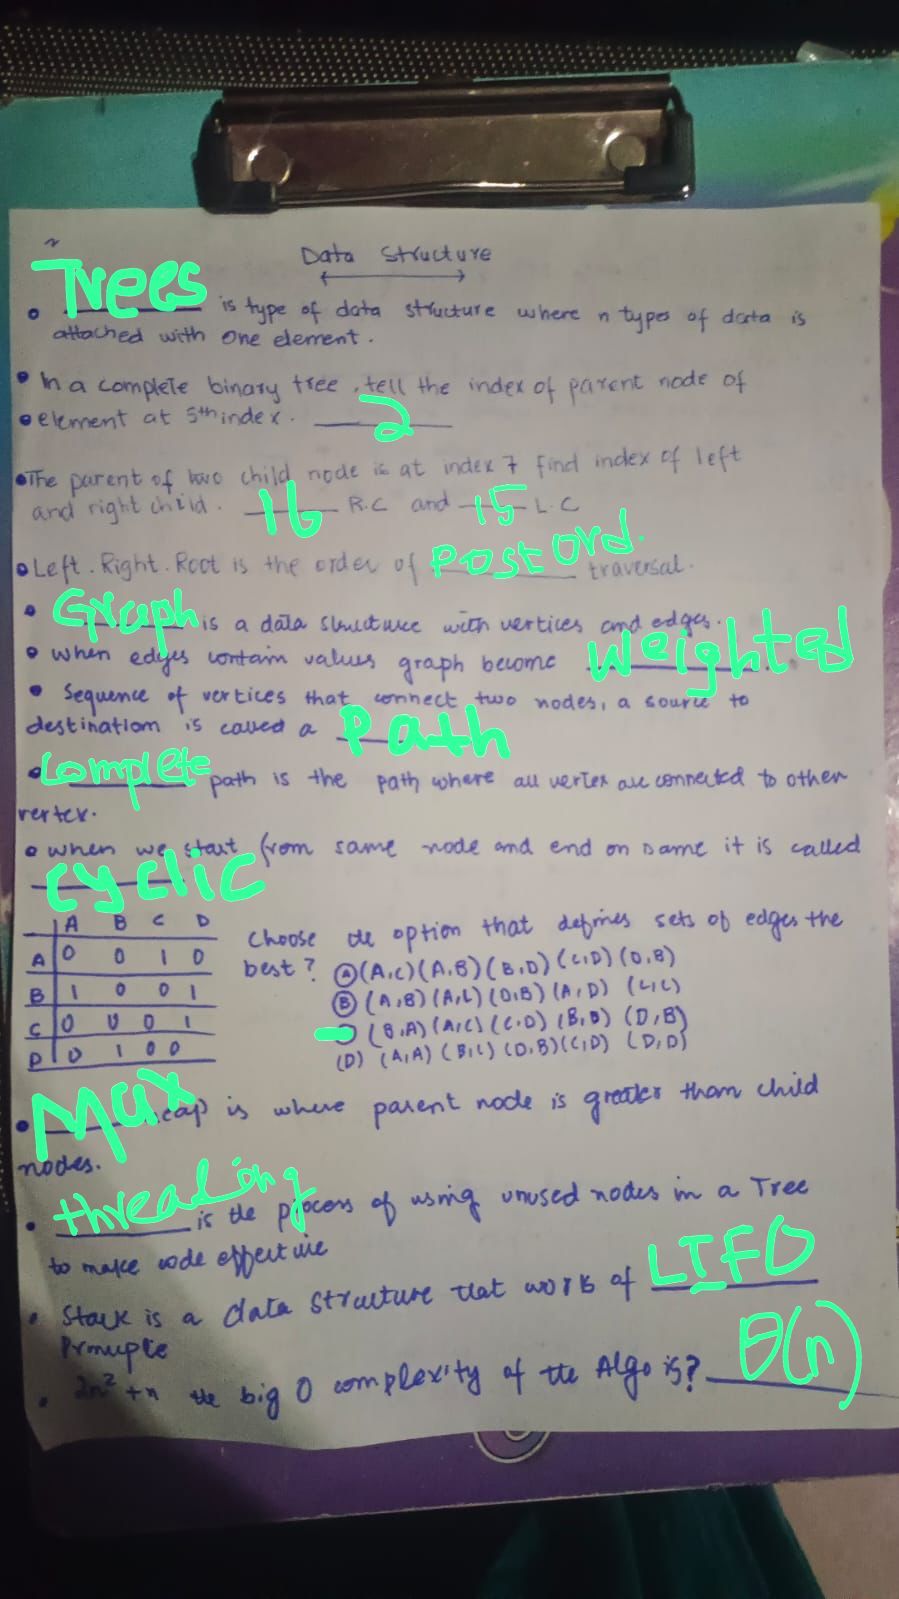 Data Structure
Trees is type of data structure where n types of data is
attached with one element.
In a complete binary tree, tell the index of parent node of
element at 5th index. 2
The parent of two child node is at index 7 find index of left
and right child. 16 R.C and 15 L.C
Left. Right. Root is the order of Post Ord. traversal.
Graph is a data structure with vertices and edges.
when edges contain values graph become Weighted
Sequence of vertices that connect two nodes, a source to
destination is called a Path
Complete path is the path where all vertex are connected to other
vertex.
when we start from same node and end on same it is called
cyclic
A B C D
A 0 0 1 0
B 1 0 0 1
C 0 0 0 1
D 0 1 0 0
Choose the option that defines sets of edges the
best? (A) (A,C) (A,B) (B,D) (C,D) (D,B)
(B) (A,B) (A,C) (D,B) (A,D) (C,C)
(B,A) (A,C) (C,D) (B,D) (D,B)
(D) (A,A) (B,C) (D,B) (C,D) (D,D)
Max heap is where parent node is greater than child
nodes.
threading is the process of using unused nodes in a Tree
to make code effective
Stack is a data structure that works of LIFO
Principle
2n² + n the big O complexity of the Algo is? θ(n)